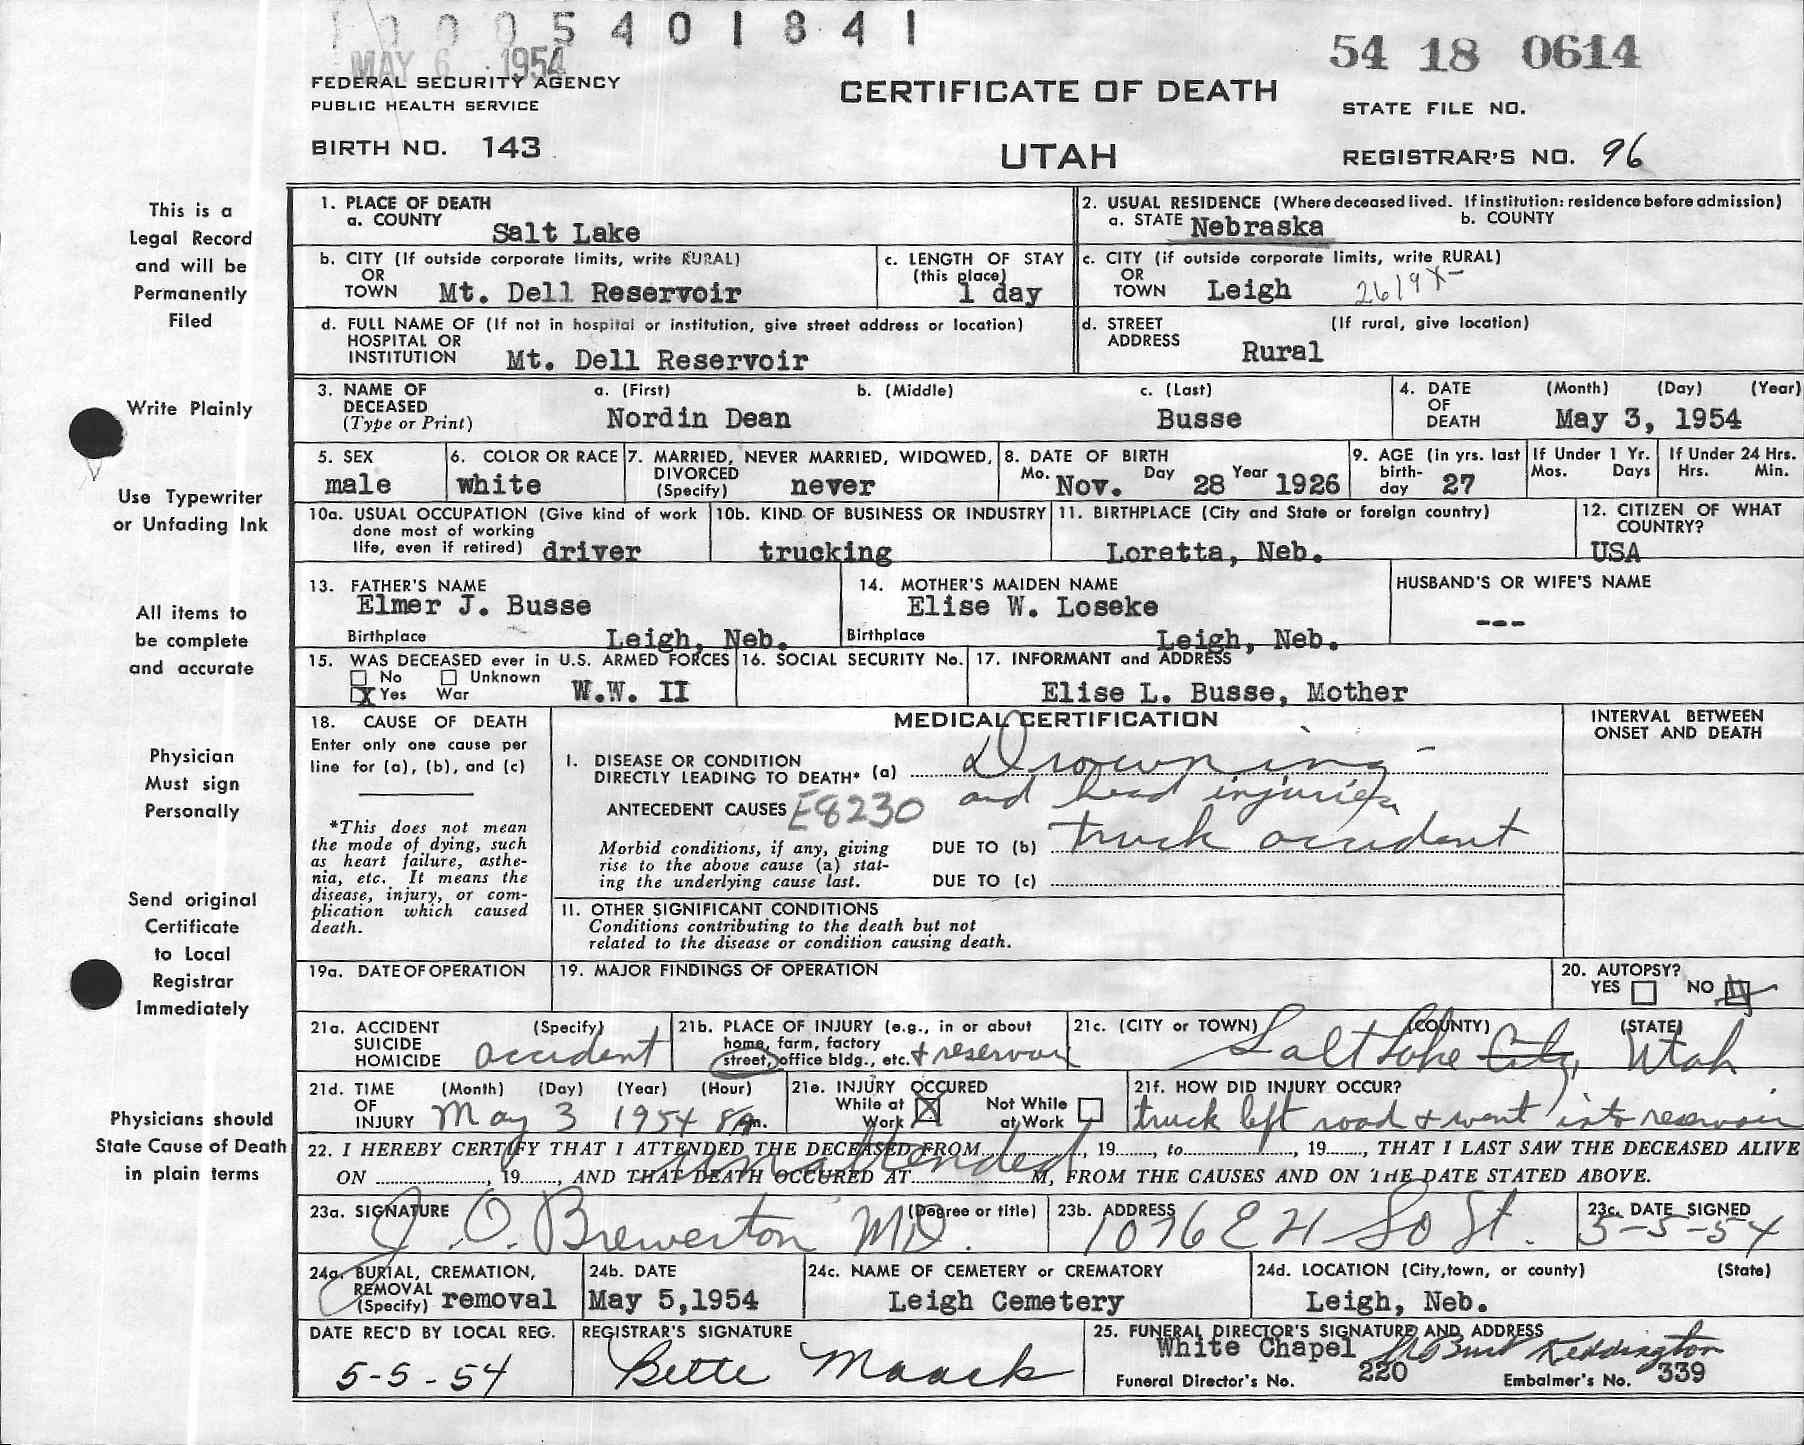 5 4 0 1 8 4 1
MAY 6 1954
54 18 0614
FEDERAL SECURITY AGENCY
PUBLIC HEALTH SERVICE
CERTIFICATE OF DEATH
STATE FILE NO.
BIRTH NO. 143
UTAH
REGISTRAR'S NO. 96
This is a
Legal Record
and will be
Permanently
Filed
Write Plainly
Use Typewriter
or Unfading Ink
All items to
be complete
and accurate
Physician
Must sign
Personally
Send original
Certificate
to Local
Registrar
Immediately
Physicians should
State Cause of Death
in plain terms
1. PLACE OF DEATH
a. COUNTY Salt Lake
2. USUAL RESIDENCE (Where deceased lived. If institution: residence before admission)
a. STATE Nebraska b. COUNTY
b. CITY (If outside corporate limits, write RURAL)
OR
TOWN Mt. Dell Reservoir
c. LENGTH OF STAY
(this place)
1 day
c. CITY (if outside corporate limits, write RURAL)
OR
TOWN Leigh 2619X-
d. FULL NAME OF (If not in hospital or institution, give street address or location)
HOSPITAL OR
INSTITUTION Mt. Dell Reservoir
d. STREET (If rural, give location)
ADDRESS
Rural
3. NAME OF
DECEASED
(Type or Print)
a. (First) b. (Middle) c. (Last)
Nordin Dean Busse
4. DATE (Month) (Day) (Year)
OF
DEATH May 3, 1954
5. SEX
male
6. COLOR OR RACE
white
7. MARRIED, NEVER MARRIED, WIDOWED,
DIVORCED
(Specify) never
8. DATE OF BIRTH
Mo. Nov. Day 28 Year 1926
9. AGE (in yrs. last
birth-
day 27
If Under 1 Yr.
Mos. Days
If Under 24 Hrs.
Hrs. Min.
10a. USUAL OCCUPATION (Give kind of work
done most of working
life, even if retired) driver
10b. KIND OF BUSINESS OR INDUSTRY
trucking
11. BIRTHPLACE (City and State or foreign country)
Loretta, Neb.
12. CITIZEN OF WHAT
COUNTRY?
USA
13. FATHER'S NAME
Elmer J. Busse
Birthplace Leigh, Neb.
14. MOTHER'S MAIDEN NAME
Elise W. Loseke
Birthplace Leigh, Neb.
HUSBAND'S OR WIFE'S NAME
---
15. WAS DECEASED ever in U.S. ARMED FORCES
No Unknown
X Yes War W.W. II
16. SOCIAL SECURITY No.
17. INFORMANT and ADDRESS
Elise L. Busse, Mother
18. CAUSE OF DEATH
Enter only one cause per
line for (a), (b), and (c)
*This does not mean
the mode of dying, such
as heart failure, asthe-
nia, etc. It means the
disease, injury, or com-
plication which caused
death.
MEDICAL CERTIFICATION
INTERVAL BETWEEN
ONSET AND DEATH
I. DISEASE OR CONDITION
DIRECTLY LEADING TO DEATH* (a) Drowning
and head injuries
ANTECEDENT CAUSES E8230
Morbid conditions, if any, giving
rise to the above cause (a) stat-
ing the underlying cause last.
DUE TO (b) truck accident
DUE TO (c)
II. OTHER SIGNIFICANT CONDITIONS
Conditions contributing to the death but not
related to the disease or condition causing death.
19a. DATE OF OPERATION
19. MAJOR FINDINGS OF OPERATION
20. AUTOPSY?
YES NO
21a. ACCIDENT (Specify)
SUICIDE
HOMICIDE accident
21b. PLACE OF INJURY (e.g., in or about
home, farm, factory
street, office bldg., etc. + reservoir
21c. (CITY or TOWN) (COUNTY) (STATE)
Salt Lake City, Utah
21d. TIME (Month) (Day) (Year) (Hour)
OF
INJURY May 3 1954 8 m.
21e. INJURY OCCURED
While at Work X Not While at Work
21f. HOW DID INJURY OCCUR?
truck left road + went into reservoir
22. I HEREBY CERTIFY THAT I ATTENDED THE DECEASED FROM unattended, 19......, to......, 19......, THAT I LAST SAW THE DECEASED ALIVE
ON ......, 19......, AND THAT DEATH OCCURED AT......M, FROM THE CAUSES AND ON THE DATE STATED ABOVE.
23a. SIGNATURE (Degree or title)
J. O. Brewerton MD.
23b. ADDRESS
1076 E 21 So St.
23c. DATE SIGNED
5-5-54
24a. BURIAL, CREMATION,
REMOVAL
(Specify) removal
24b. DATE
May 5,1954
24c. NAME OF CEMETERY or CREMATORY
Leigh Cemetery
24d. LOCATION (City,town, or county) (State)
Leigh, Neb.
DATE REC'D BY LOCAL REG.
5-5-54
REGISTRAR'S SIGNATURE
Bette Maack
25. FUNERAL DIRECTOR'S SIGNATURE AND ADDRESS
White Chapel Keddington
Funeral Director's No. 220 Embalmer's No. 339